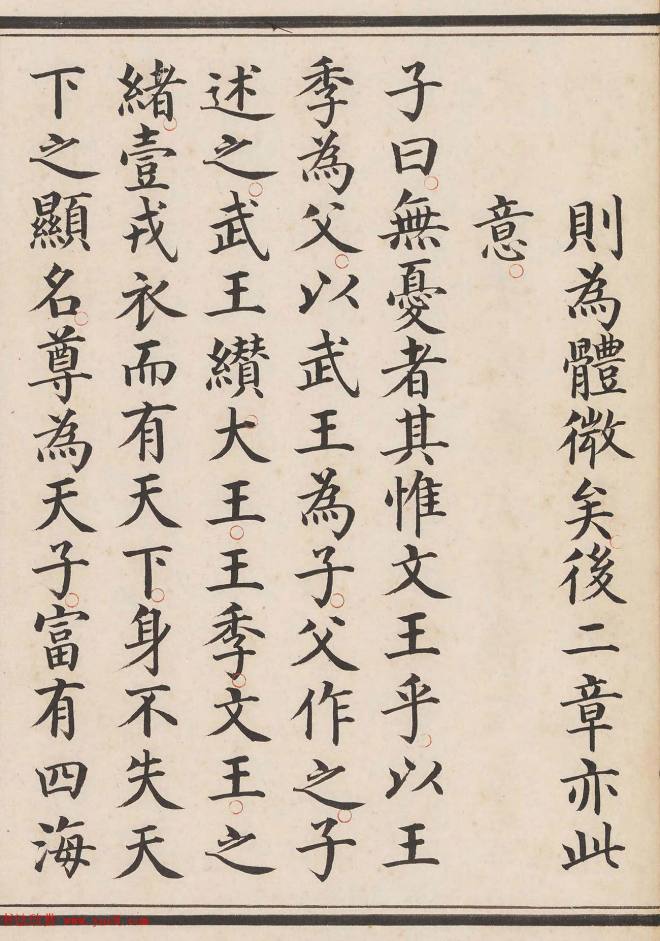 則為體微矣後二章亦此
意
子曰無憂者其惟文王乎以王
季為父以武王為子父作之子
述之武王纘大王王季文王之
緒壹戎衣而有天下身不失天
下之顯名尊為天子富有四海